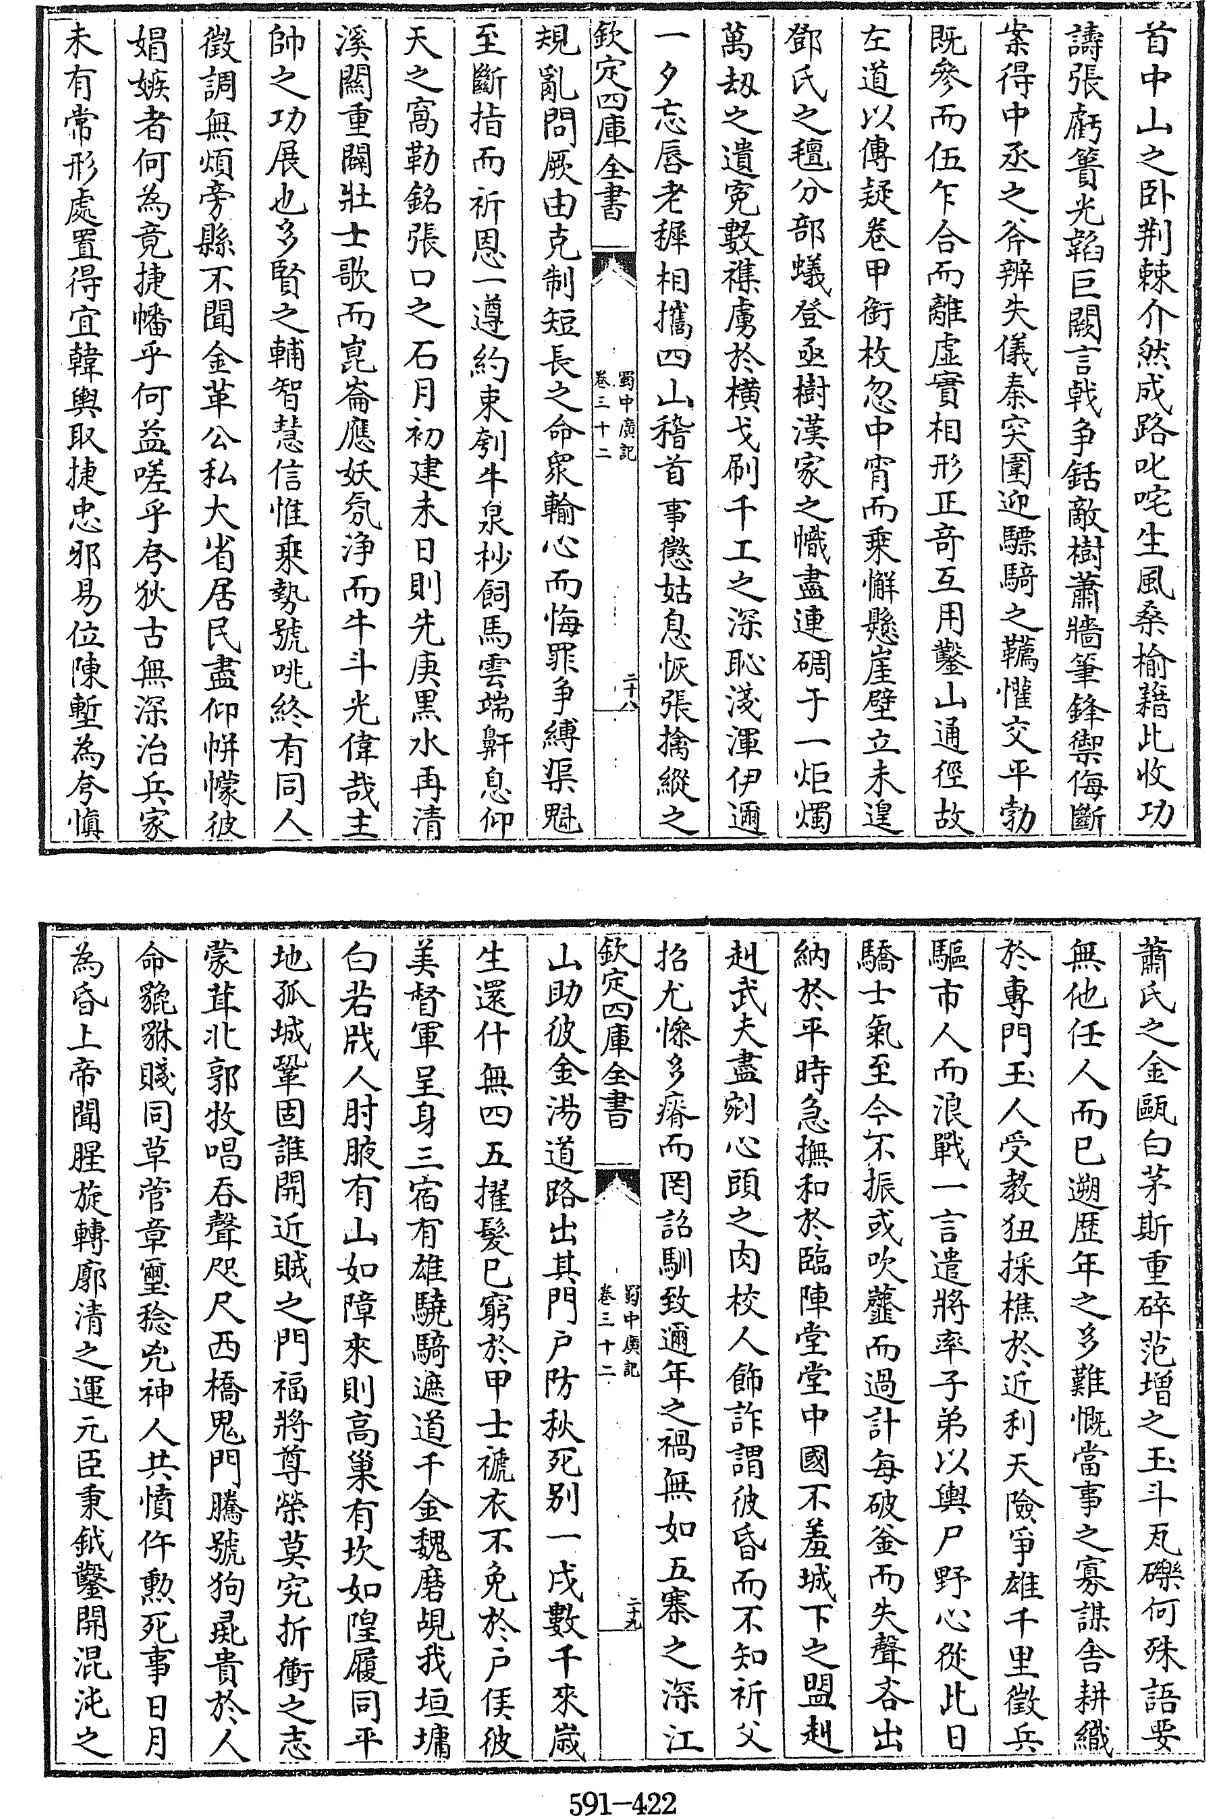 首中山之卧荆棘介然成路叱咤生風桑榆藉此收功
譸張虧簣光韜巨闕言戰争銛敵樹蕭牆筆鋒禦侮斷
案得中丞之斧辨失儀秦突圍迎驃騎之鞲懽交平勃
既參而伍乍合而離虛實相形正奇互用鑿山通徑故
左道以傳疑卷甲銜枚忽中宵而乗懈懸崖壁立未遑
鄧氏之氊分部蟻登亟樹漢家之幟盡連碉于一炬燭
萬刼之遺寃數襍虜於横戈刷千工之深恥淺渾伊邇
一夕忘唇老穉相攜四山稽首事懲姑息恢張擒縱之
欽定四庫全書
蜀中廣記
卷三十二
二十八
規亂問厥由克制短長之命衆輸心而悔罪争縛渠魁
至斷指而祈恩一遵約束刳牛泉杪飼馬雲端鼾息仰
天之窩勒銘張口之石月初建未日則先庚黒水再清
溪關重闢壯士歌而崑崙應妖氛浄而牛斗光偉哉主
帥之功展也多賢之輔智慧信惟乗勢號咷終有同人
徵調無煩旁縣不聞金革公私大省居民盡仰帡幪彼
娼嫉者何為竟捷幡乎何益嗟乎夸狄古無深治兵家
未有常形處置得宜韓輿取捷忠邪易位陳塹為夸愼
蕭氏之金甌白茅斯重碎范增之玉斗瓦礫何殊語要
無他任人而已遡歴年之多難慨當事之寡謀舎耕織
於專門玉人受教狃採樵於近利天險爭雄千里徵兵
驅市人而浪戰一言遣將率子弟以輿尸野心從此日
驕士氣至今不振或吹虀而過計每破釜而失聲吝出
納於平時急撫和於臨陣堂堂中國不羞城下之盟赳
赳武夫盡剜心頭之肉校人飾詐謂彼昏而不知祈父
招尤慘多瘠而罔詔馴致邇年之禍無如五寨之深江
欽定四庫全書
蜀中廣記
卷三十二
二十九
山助彼金湯道路出其門戸防秋死别一戍數千來嵗
生還什無四五擢髮已窮於甲士褫衣不免於戸侯彼
美督軍呈身三宿有雄驍騎遮道千金魏磨覘我垣墉
白若戕人肘腋有山如障來則高巢有坎如隍履同平
地孤城鞏固誰開近賊之門福將尊榮莫究折衝之志
蒙茸北郭牧唱吞聲咫尺西橋鬼門騰號狗彘貴於人
命貔貅賤同草菅章璽稔兇神人共憤仵勲死事日月
為昏上帝聞腥旋轉廓清之運元臣秉鉞鑿開混沌之
591-422